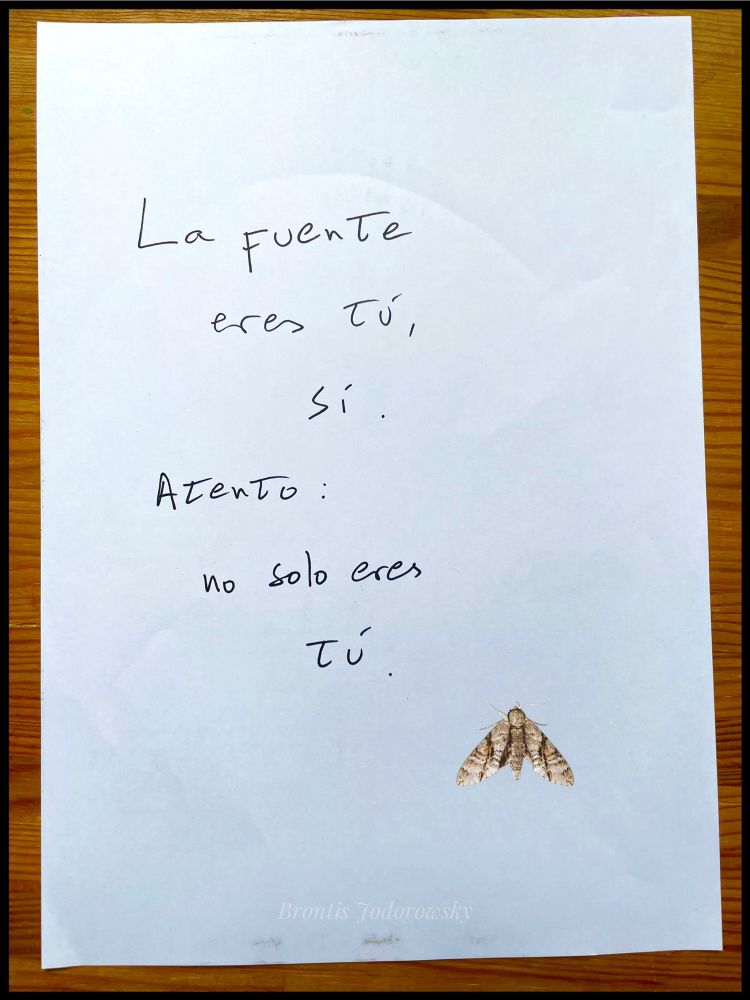 La fuente
eres tú,
sí.
Atento:
no solo eres
tú.
Brontis Jodorowsky